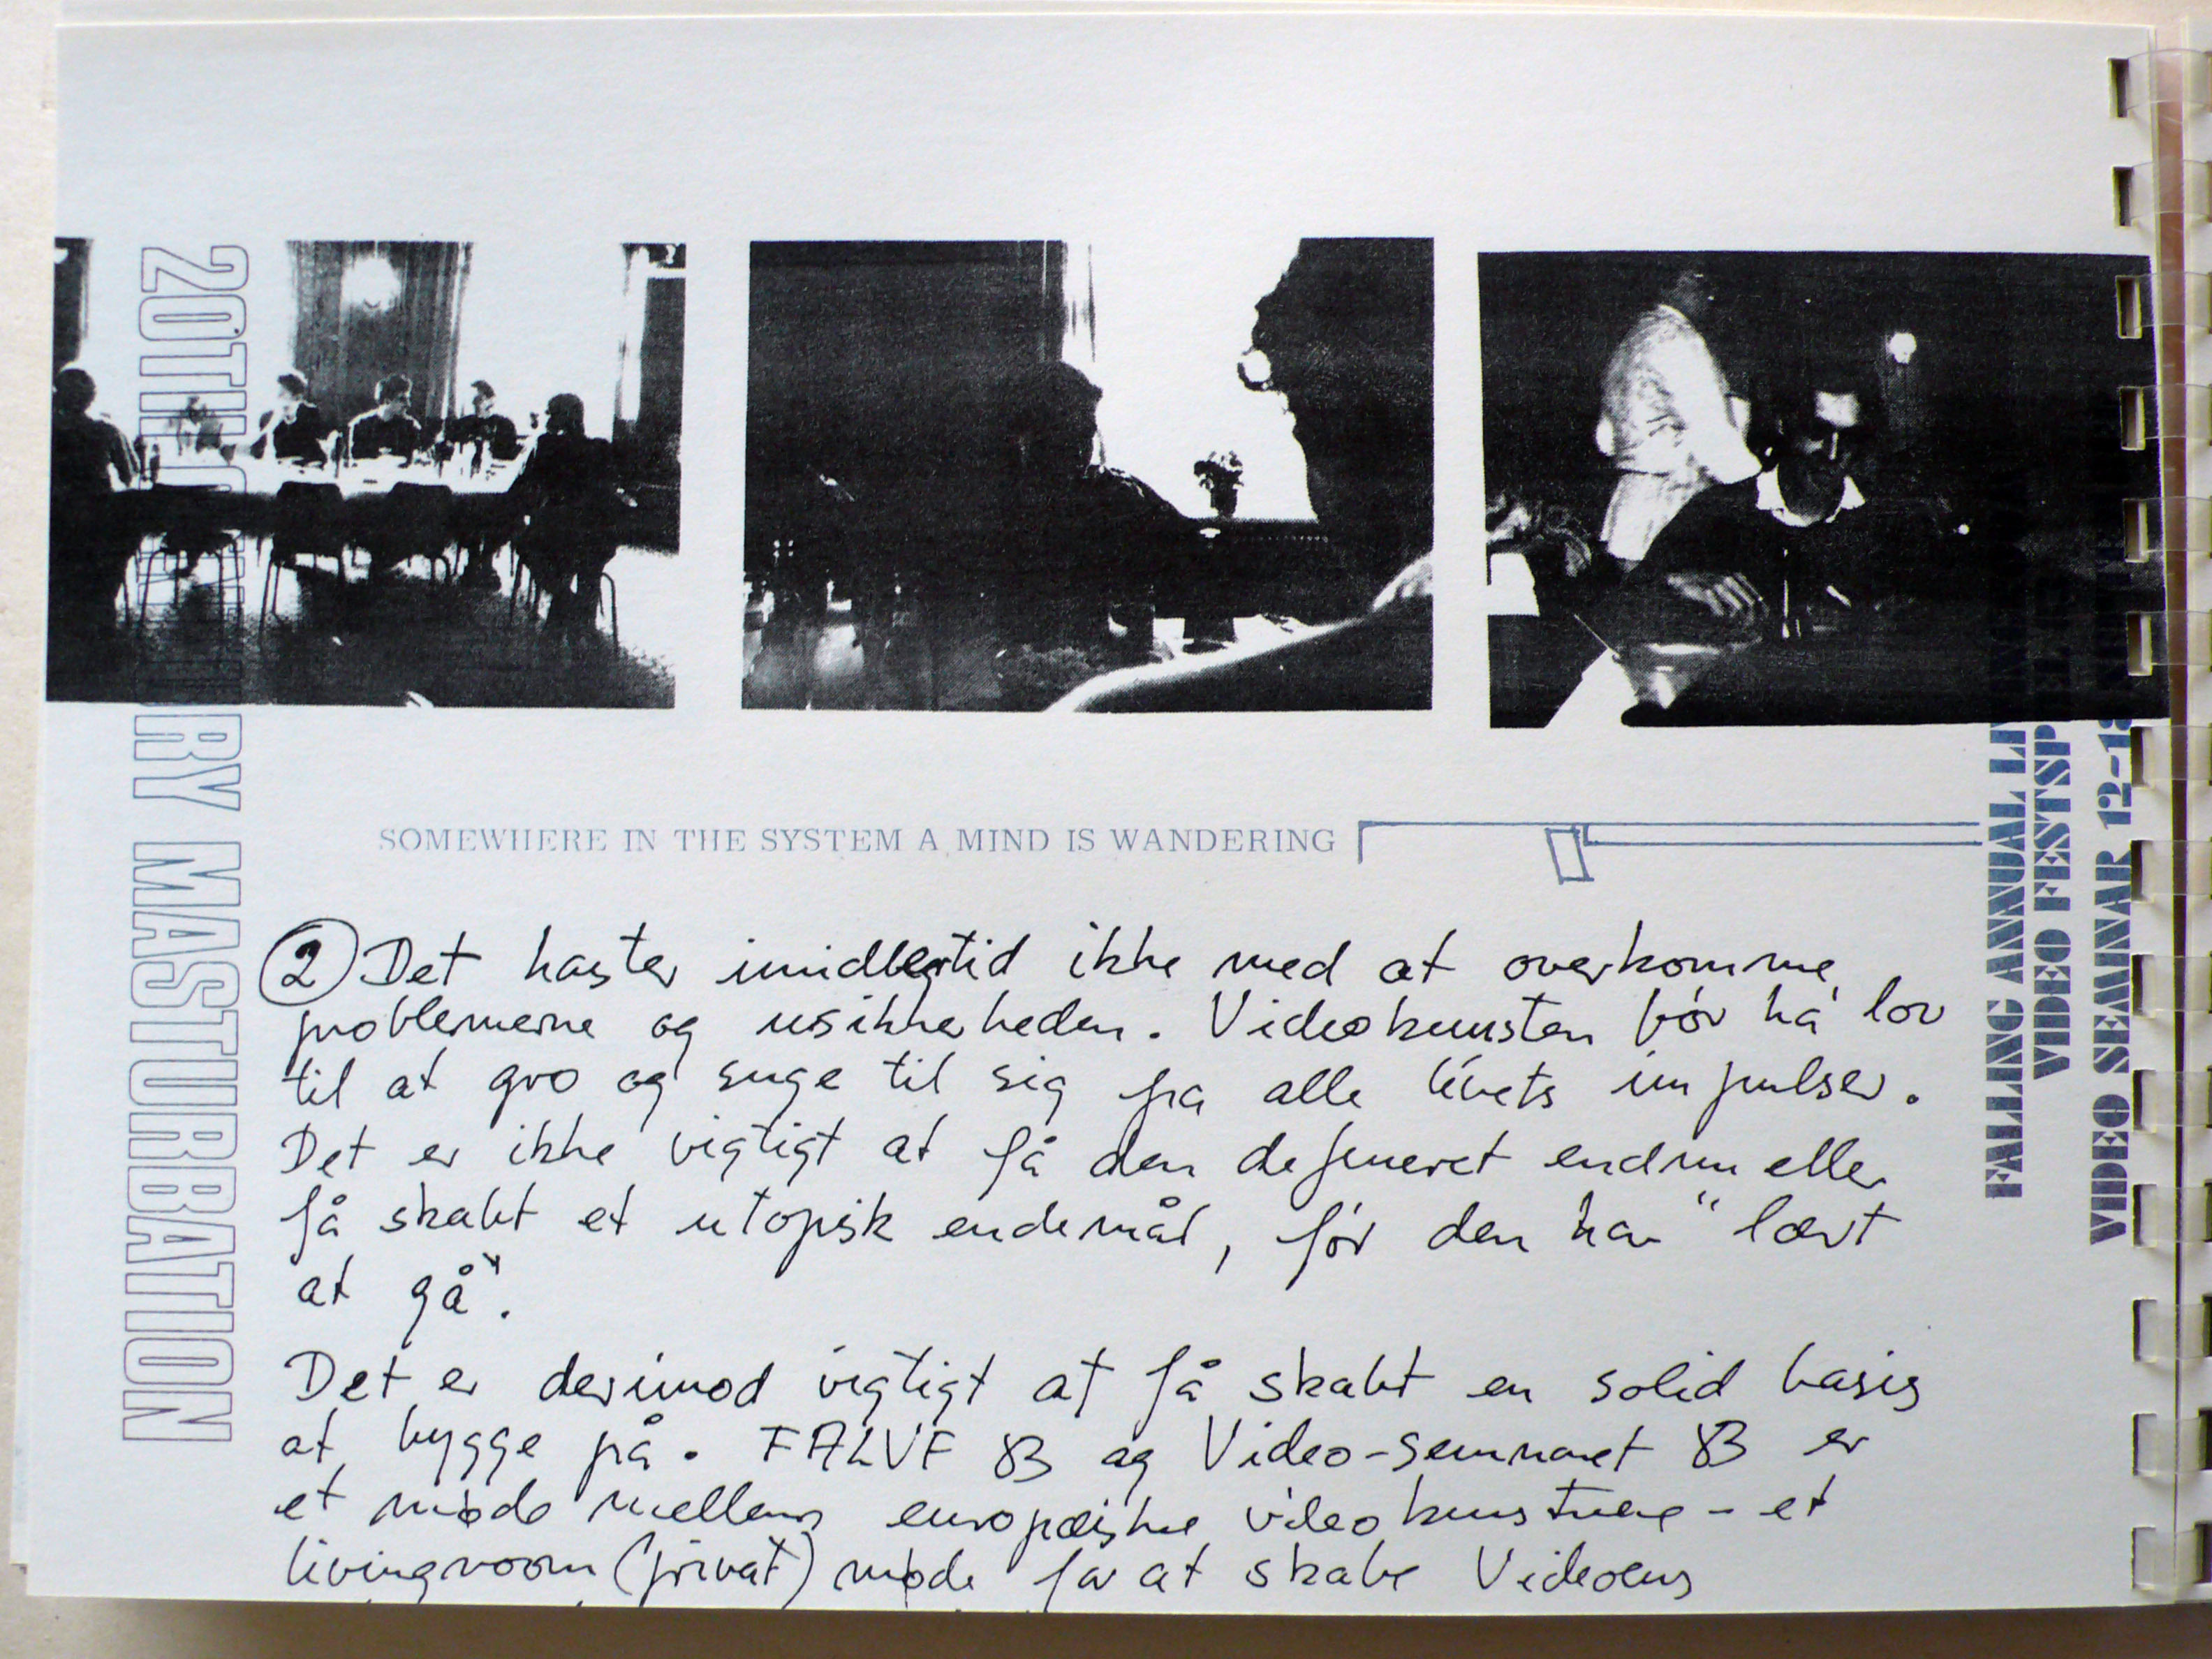 20TH RY MASTURBATION
SOMEWHERE IN THE SYSTEM A MIND IS WANDERING
FALLING ANNUAL LI
VIDEO FESTSP
VIDEO SEMINAR 12-18
② Det haster imidlertid ikke med at overkomme
problemerne og usikkerheden. Videokunsten bør ha' lov
til at gro og suge til sig fra alle livets impulser.
Det er ikke vigtigt at få den defineret endnu eller
få skabt et utopisk endemål, før den har "lært
at gå".
Det er derimod vigtigt at få skabt en solid basis
at bygge på. FALVF 83 og Video-seminaret 83 er
et møde mellem europæiske videokunstnere - et
livingroom (privat) møde for at skabe Videoens